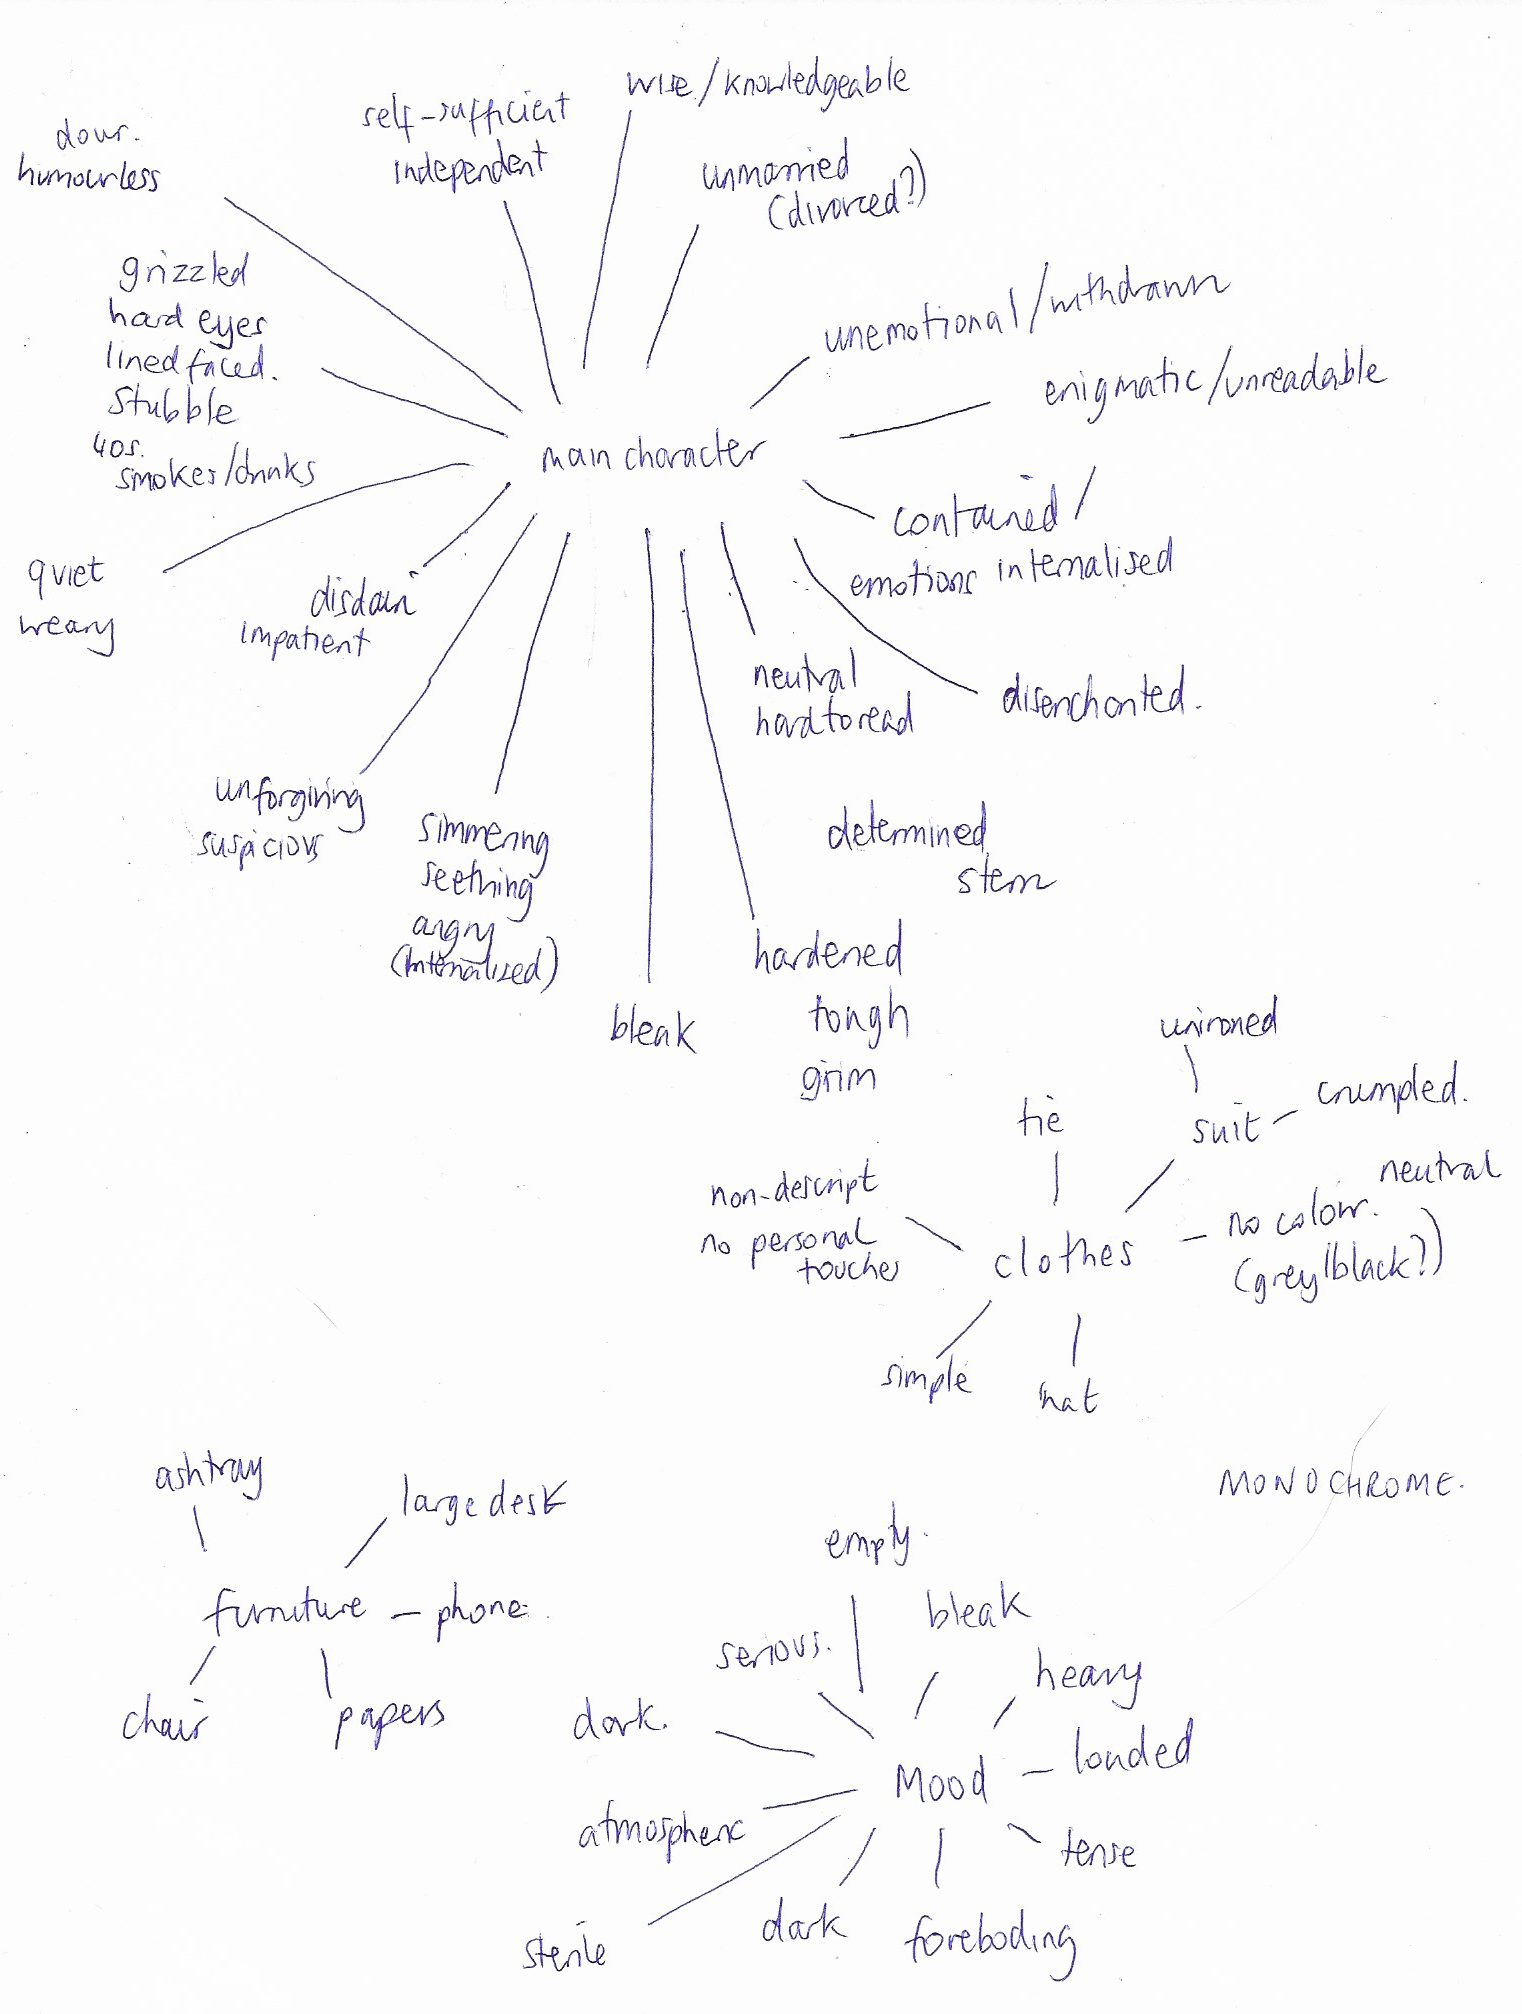 wise/knowledgeable
self-sufficient
independent
dour.
humourless
unmarried
(divorced?)
grizzled
hard eyes
lined faced.
stubble
40s.
smokes/drinks
unemotional/withdrawn
enigmatic/unreadable
main character
contained/
emotions internalised
quiet
weary
disdain
impatient
neutral
hard to read
disenchanted.
unforgiving
suspicious
simmering
seething
angry
(internalised)
determined
stern
hardened
tough
grim
bleak
unironed
suit
crumpled.
tie
non-descript
no personal
touches
clothes
no colour.
neutral
(grey/black?)
simple
hat
MONOCHROME.
ashtray
large desk
furniture
phone
chair
papers
empty.
bleak
serious.
heavy
dark.
Mood
loaded
atmospheric
tense
sterile
dark
foreboding